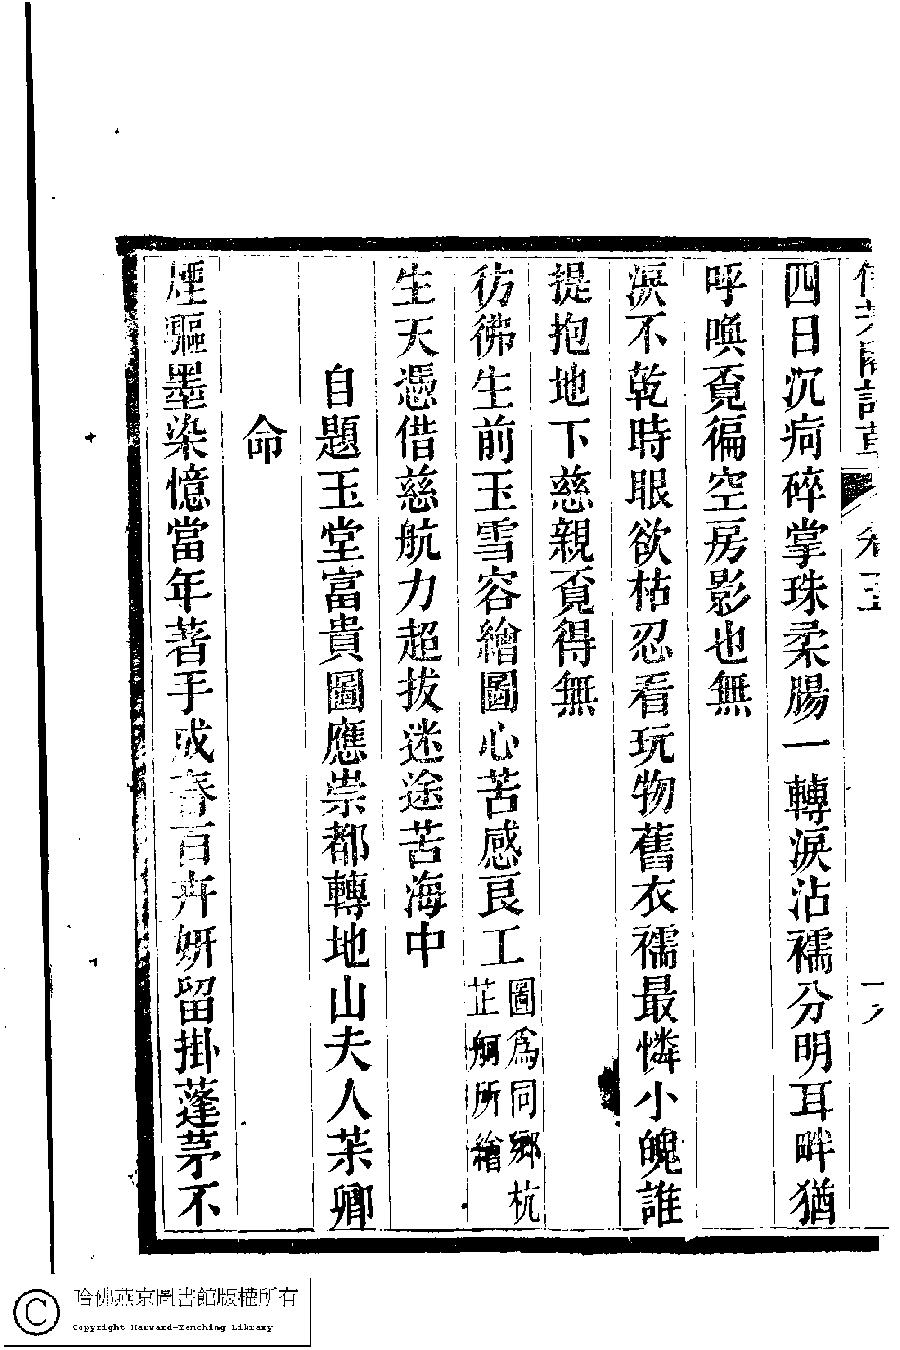 卷三
四日沉疴碎掌珠柔腸一轉淚沾襦分明耳畔猶
呼喚覔徧空房影也無
淚不乾時眼欲枯忍看玩物舊衣襦最憐小魄誰
提抱地下慈親覔得無
彷彿生前玉雪容繪圖心苦感良工圖爲同鄉杭
芷舸所繪
生天憑借慈航力超拔迷途苦海中
自題玉堂富貴圖應崇都轉地山夫人茮卿
命
煙驅墨染憶當年著手成春百卉妍留掛蓬茅不
哈佛燕京圖書館版權所有
Copyright Harvard-Yenching Library